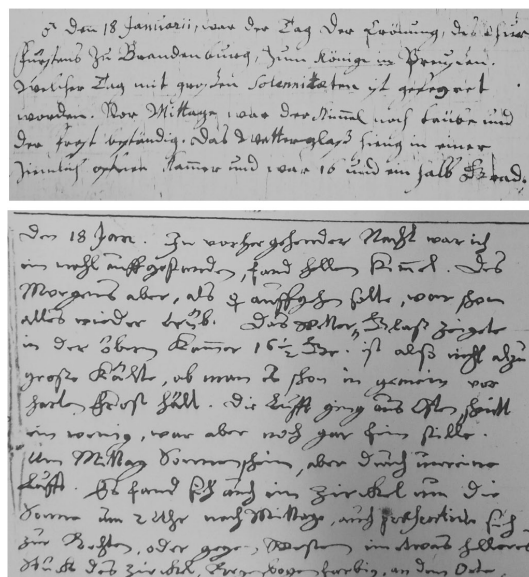 ♂ den 18 Januarii, war der Tag der Crönung, des Chur
Fürstens zu Brandenburg, zum Könige in Preußen.
welcher Tag mit großen Solennitäten ist gefeyret
worden. Vor Mittage war der Himmel noch trübe und
der Frost beständig. Das Wetterglaß hieng in einer
ziemlich offenen Kammer und war 16 und ein halb Grad.
den 18 Jan. In vorhergehender Nacht war ich
ein mahl auffgestanden, fand hellen Himmel. Des
Morgens aber, als ☿ auffgehen solte, war schon
alles wieder trüb. Das Wetter Glaß zeigete
in der öbern Kammer 16 1/2 Gr. ist alß nicht allzu
große Kälte, ob man es schon in gemein vor
harten Frost hält. Die Lufft ging aus Osten,
ein wenig, war aber noch gar fein stille.
Um Mittag Sonnenschein, aber durch unreine
Lufft. Es fand sich auch ein Zirckel um die
Sonne um 2 Uhr nach Mittage, auch sich
zur Rechten, oder gegen Westen ein etwas helleres
Stück des Zirckel, Regenbogen farbig, an dem Orte,